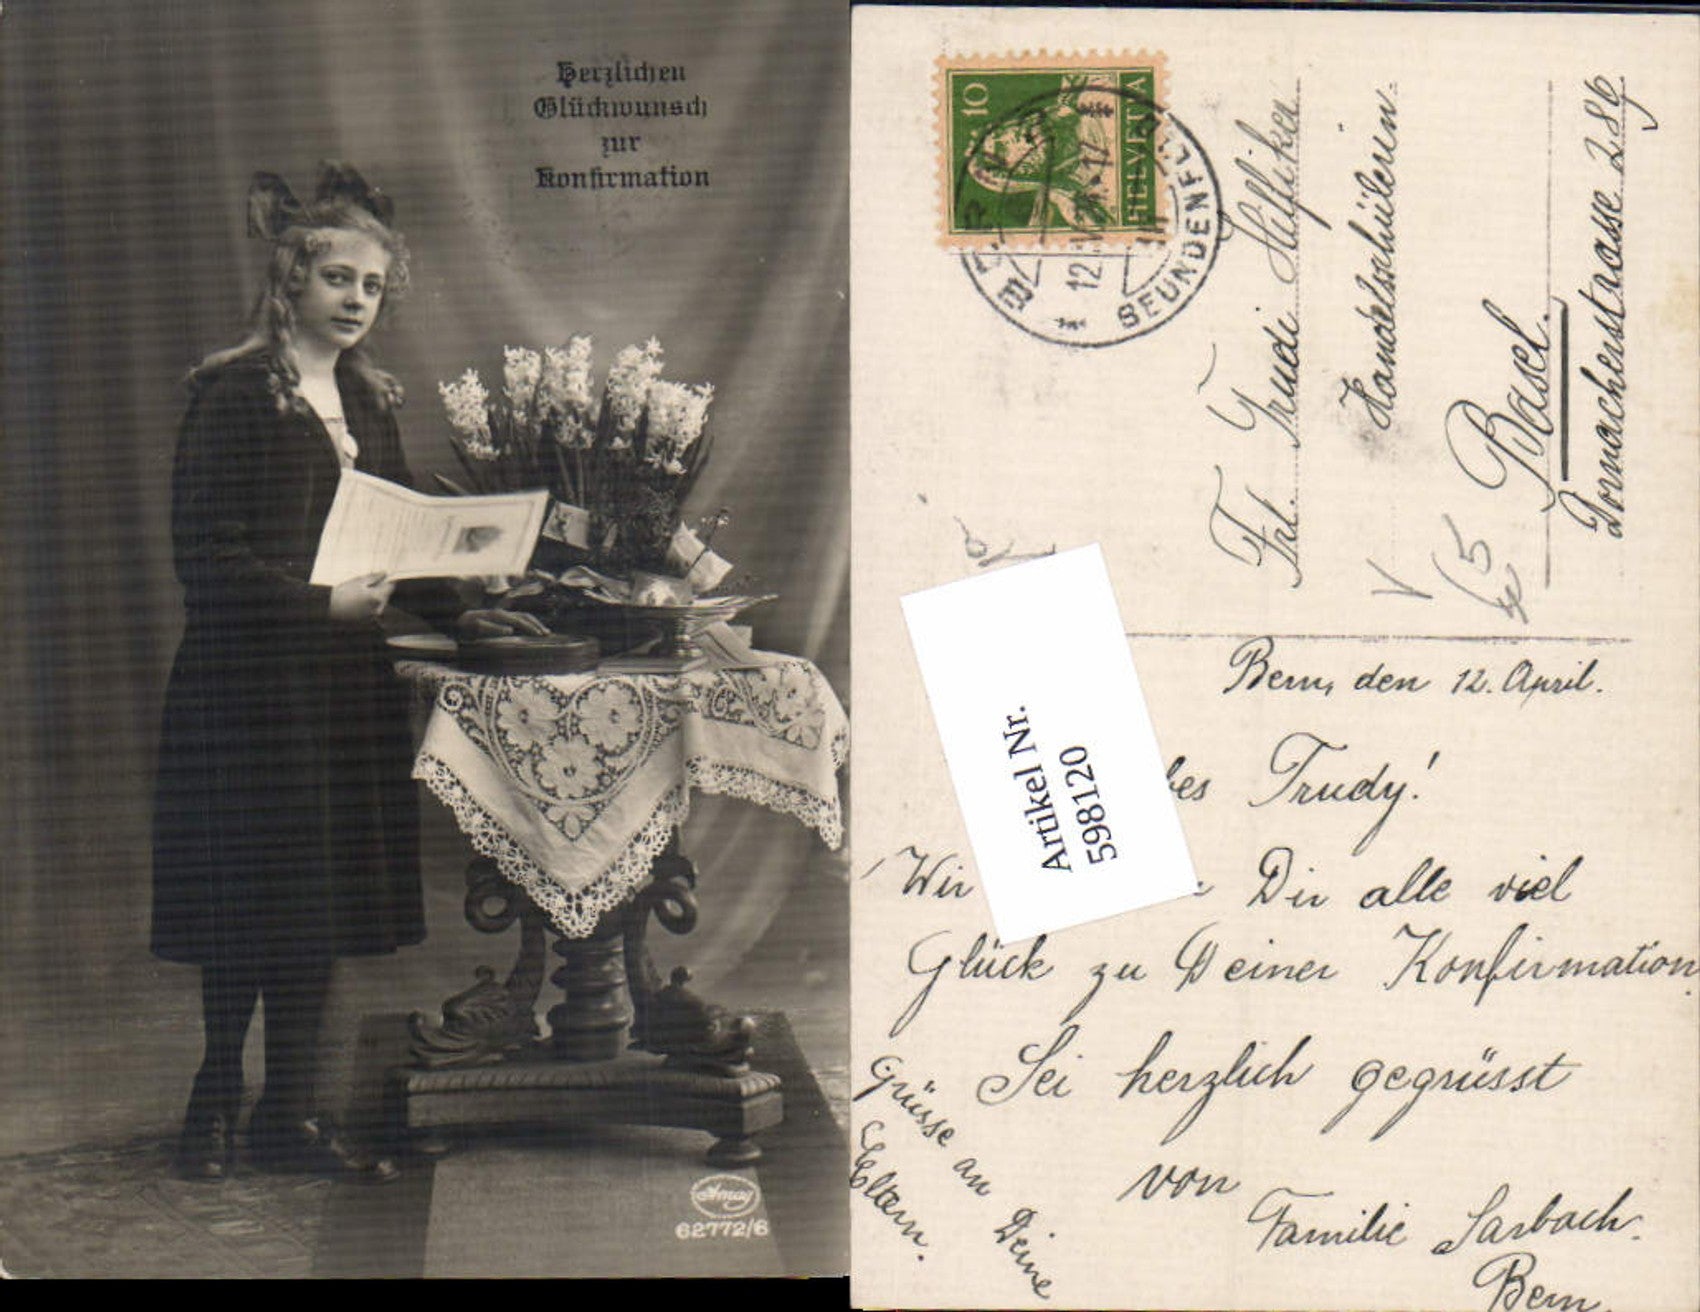 Herzlichen
Glückwunsch
zur
Konfirmation
Amag
62772/6
10
HELVETIA
BERN
12.IV.
BEUNDENFELD
Frl. Trudi Hilfiker
Handelsschülerin
Basel.
Dornacherstrasse 286
45
Artikel Nr.
598120
Bern, den 12. April.
bes Trudy!
Wir Dir alle viel
Glück zu Deiner Konfirmation.
Sei herzlich gegrüsst
von
Familie Sarbach.
Bern
Grüsse an Deine
Eltern.